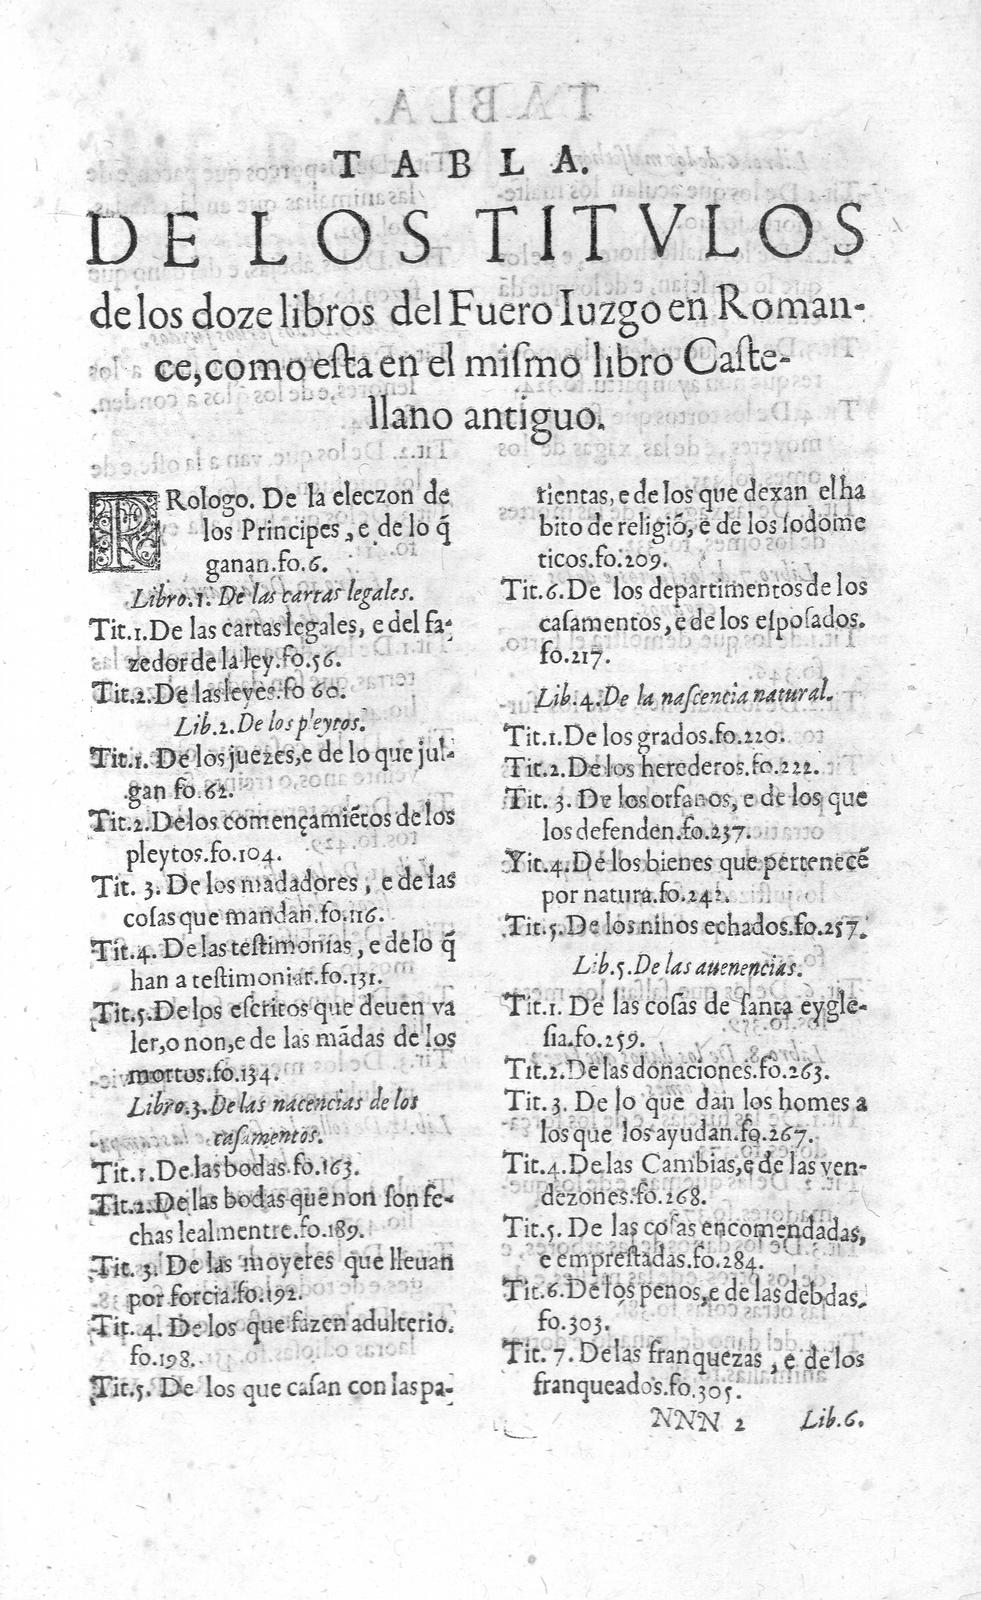 TABLA.
DE LOS TITVLOS
de los doze libros del Fuero Iuzgo en Roman-
ce, como esta en el mismo libro Caste-
llano antiguo.
PRologo. De la eleczon de
los Principes, e de lo q̃
ganan.fo.6.
Libro.1. De las cartas legales.
Tit.1.De las cartas legales, e del fa-
zedor de la ley.fo.56.
Tit.2.De las leyes.fo 60.
Lib.2. De los pleytos.
Tit.1. De los juezes,e de lo que jul-
gan fo.62.
Tit.2.De los començamiẽtos de los
pleytos.fo.104.
Tit. 3. De los mãdadores, e de las
cosas que mandan.fo.116.
Tit.4. De las testimonias, e de lo q̃
han a testimoniar.fo.131.
Tit.5.De los escritos que deuen va
ler,o non,e de las mãdas de los
mortos.fo.134.
Libro.3.De las nacencias de los
casamentos.
Tit.1.De las bodas.fo.163.
Tit.2.De las bodas que non son fe-
chas lealmentre.fo.189.
Tit. 3. De las moyeres que lleuan
por forcia.fo.192.
Tit. 4. De los que fazen adulterio.
fo.198.
Tit.5. De los que casan con las pa-
rientas, e de los que dexan el ha
bito de religiõ, e de los sodome
ticos.fo.209.
Tit.6.De los departimentos de los
casamentos, e de los esposados.
fo.217.
Lib.4.De la nascencia natural.
Tit.1.De los grados.fo.220.
Tit.2.De los herederos.fo.222.
Tit. 3. De los orfanos, e de los que
los defenden.fo.237.
Tit.4.De los bienes que pertenecẽ
por natura.fo.242.
Tit.5.De los ninos echados.fo.257.
Lib.5.De las auenencias.
Tit.1. De las cosas de santa eygle-
sia.fo.259.
Tit.2.De las donaciones.fo.263.
Tit.3. De lo que dan los homes a
los que los ayudan.fo.267.
Tit.4.De las Cambias,e de las ven-
dezones.fo.268.
Tit.5. De las cosas encomendadas,
e emprestadas.fo.284.
Tit.6.De los penos,e de las debdas.
fo.303.
Tit. 7. De las franquezas, e de los
franqueados.fo.305.
NNN 2 Lib.6.